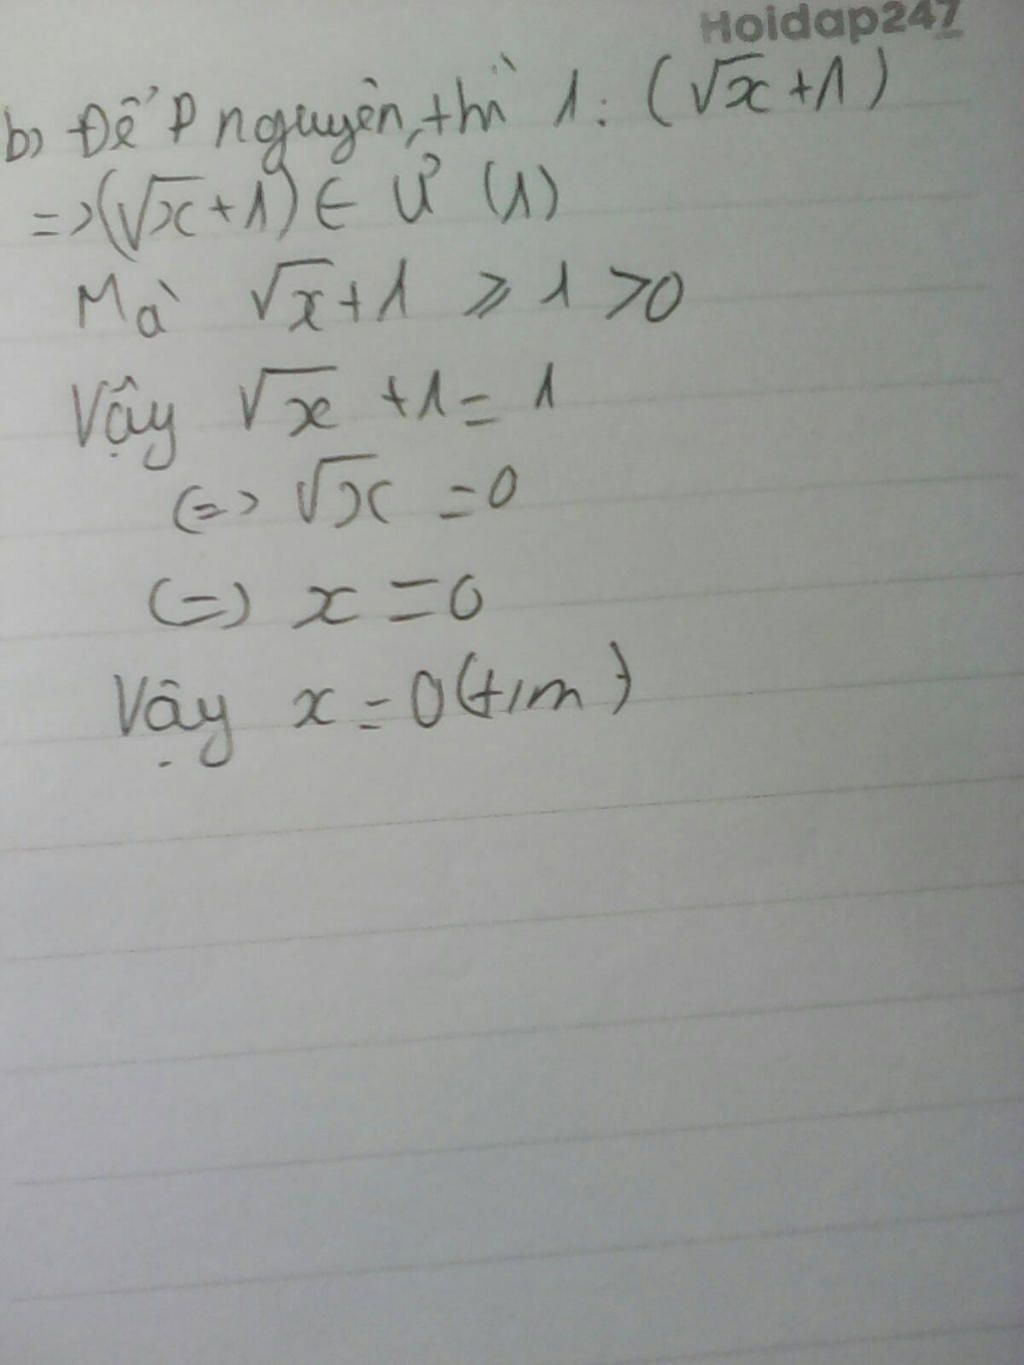 Hoidap247
b) Để P nguyên, thì 1 : (√x + 1)
=> (√x + 1) ∈ Ư (1)
Mà √x + 1 ⩾ 1 > 0
Vậy √x + 1 = 1
(=> √x = 0
(=) x = 0
Vậy x = 0 (t/m)